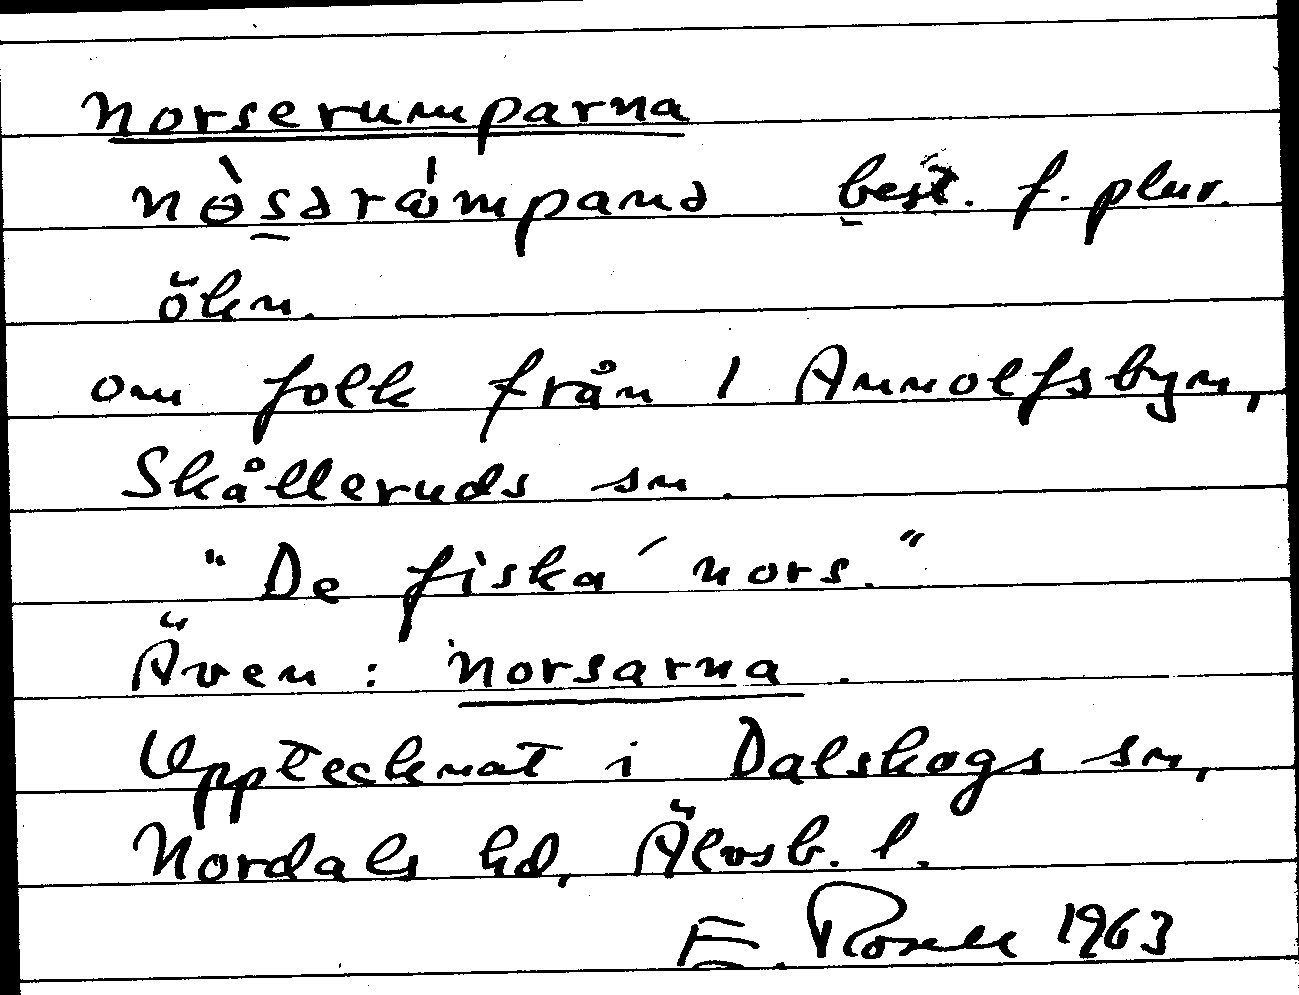 norserumparna
nø̀sərǿmpanə best. f. plur.
ökn.
om folk från 1 Annolfsbyn,
Skålleruds sn.
"De fiska' nors."
Även: norsarna.
Upptecknat i Dalskogs sn,
Nordals hd, Älvsb. l.
E. Rosell 1963